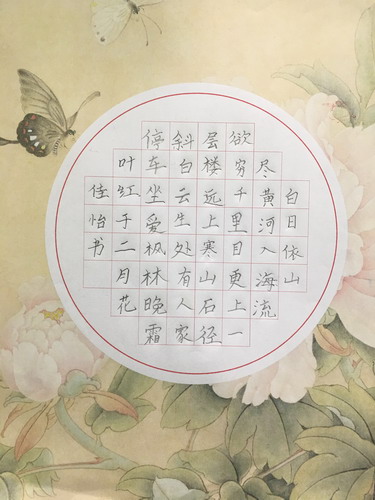 白日依山
尽黄河入海流
欲穷千里目更上一
层楼远上寒山石径
斜白云生处有人家
停车坐爱枫林晚霜
叶红于二月花
佳怡书